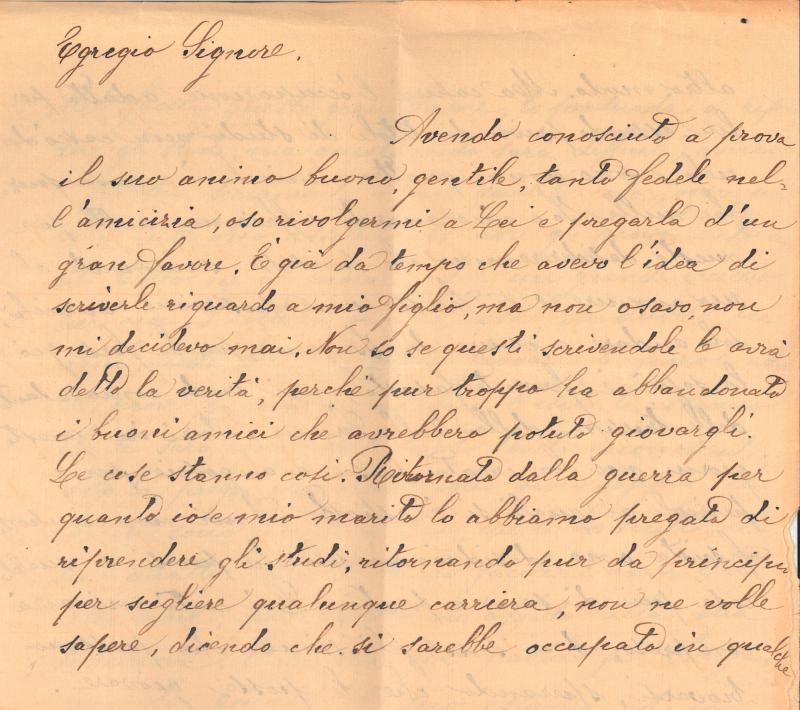 Egregio Signore.
Avendo conosciuto a prova
il suo animo buono, gentile, tanto fedele nel-
l'amicizia, oso rivolgermi a Lei e pregarla d'un
gran favore. È già da tempo che avevo l'idea di
scriverle riguardo a mio figlio, ma non osavo, non
mi decidevo mai. Non so se questi scrivendole le avrà
detto la verità, perchè pur troppo ha abbandonato
i buoni amici che avrebbero potuto giovargli.
Le cose stanno così. Ritornato dalla guerra per
quanto io e mio marito lo abbiamo pregato di
riprendere gli studi, ritornando pur da principio
per scegliere qualunque carriera, non ne volle
sapere, dicendo che si sarebbe occupato in qualche